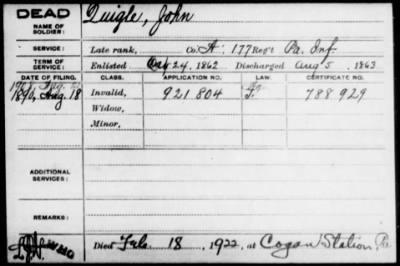 DEAD
NAME OF SOLDIER: Quigle, John
SERVICE: Late rank, Co. A. 177 Reg't Pa. Inf
TERM OF SERVICE: Enlisted 24, 1862 Discharged Aug 5, 1863
DATE OF FILING. CLASS. APPLICATION NO. LAW. CERTIFICATE NO.
1890, Aug. 18 Invalid, 921 804 788 929
Widow,
Minor,
ADDITIONAL SERVICES:
REMARKS:
Died Feb. 18, 1922, at Cogan Station, Pa